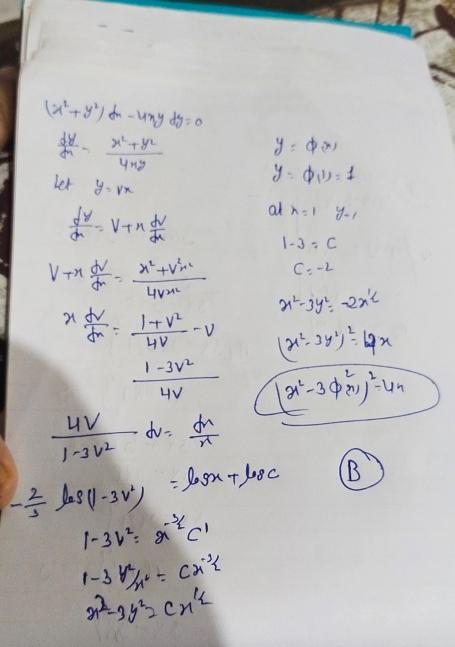 (x² + y²) dx - 4xy dy = 0
dy/dx = x² + y²/4xy
let y = vx
dy/dx = V + x dv/dx
V + x dv/dx = x² + v²x²/4Vx²
x dv/dx = 1 + V²/4V - V
1 - 3V²/4V
4V/1 - 3V² dv = dx/x
-2/3 log(1 - 3V²) = log x + log c
1 - 3V² = x^-3/2 C'
1 - 3 y²/x² = Cx^-3/2
x² - 3y² = Cx^1/2
y = φ(x)
y = φ(1) = 1
at x = 1 y = 1
1 - 3 = C
C = -2
x² - 3y² = -2x^1/2
(x² - 3y²)² = 4x
(x² - 3φ²(x))² = 4x
B